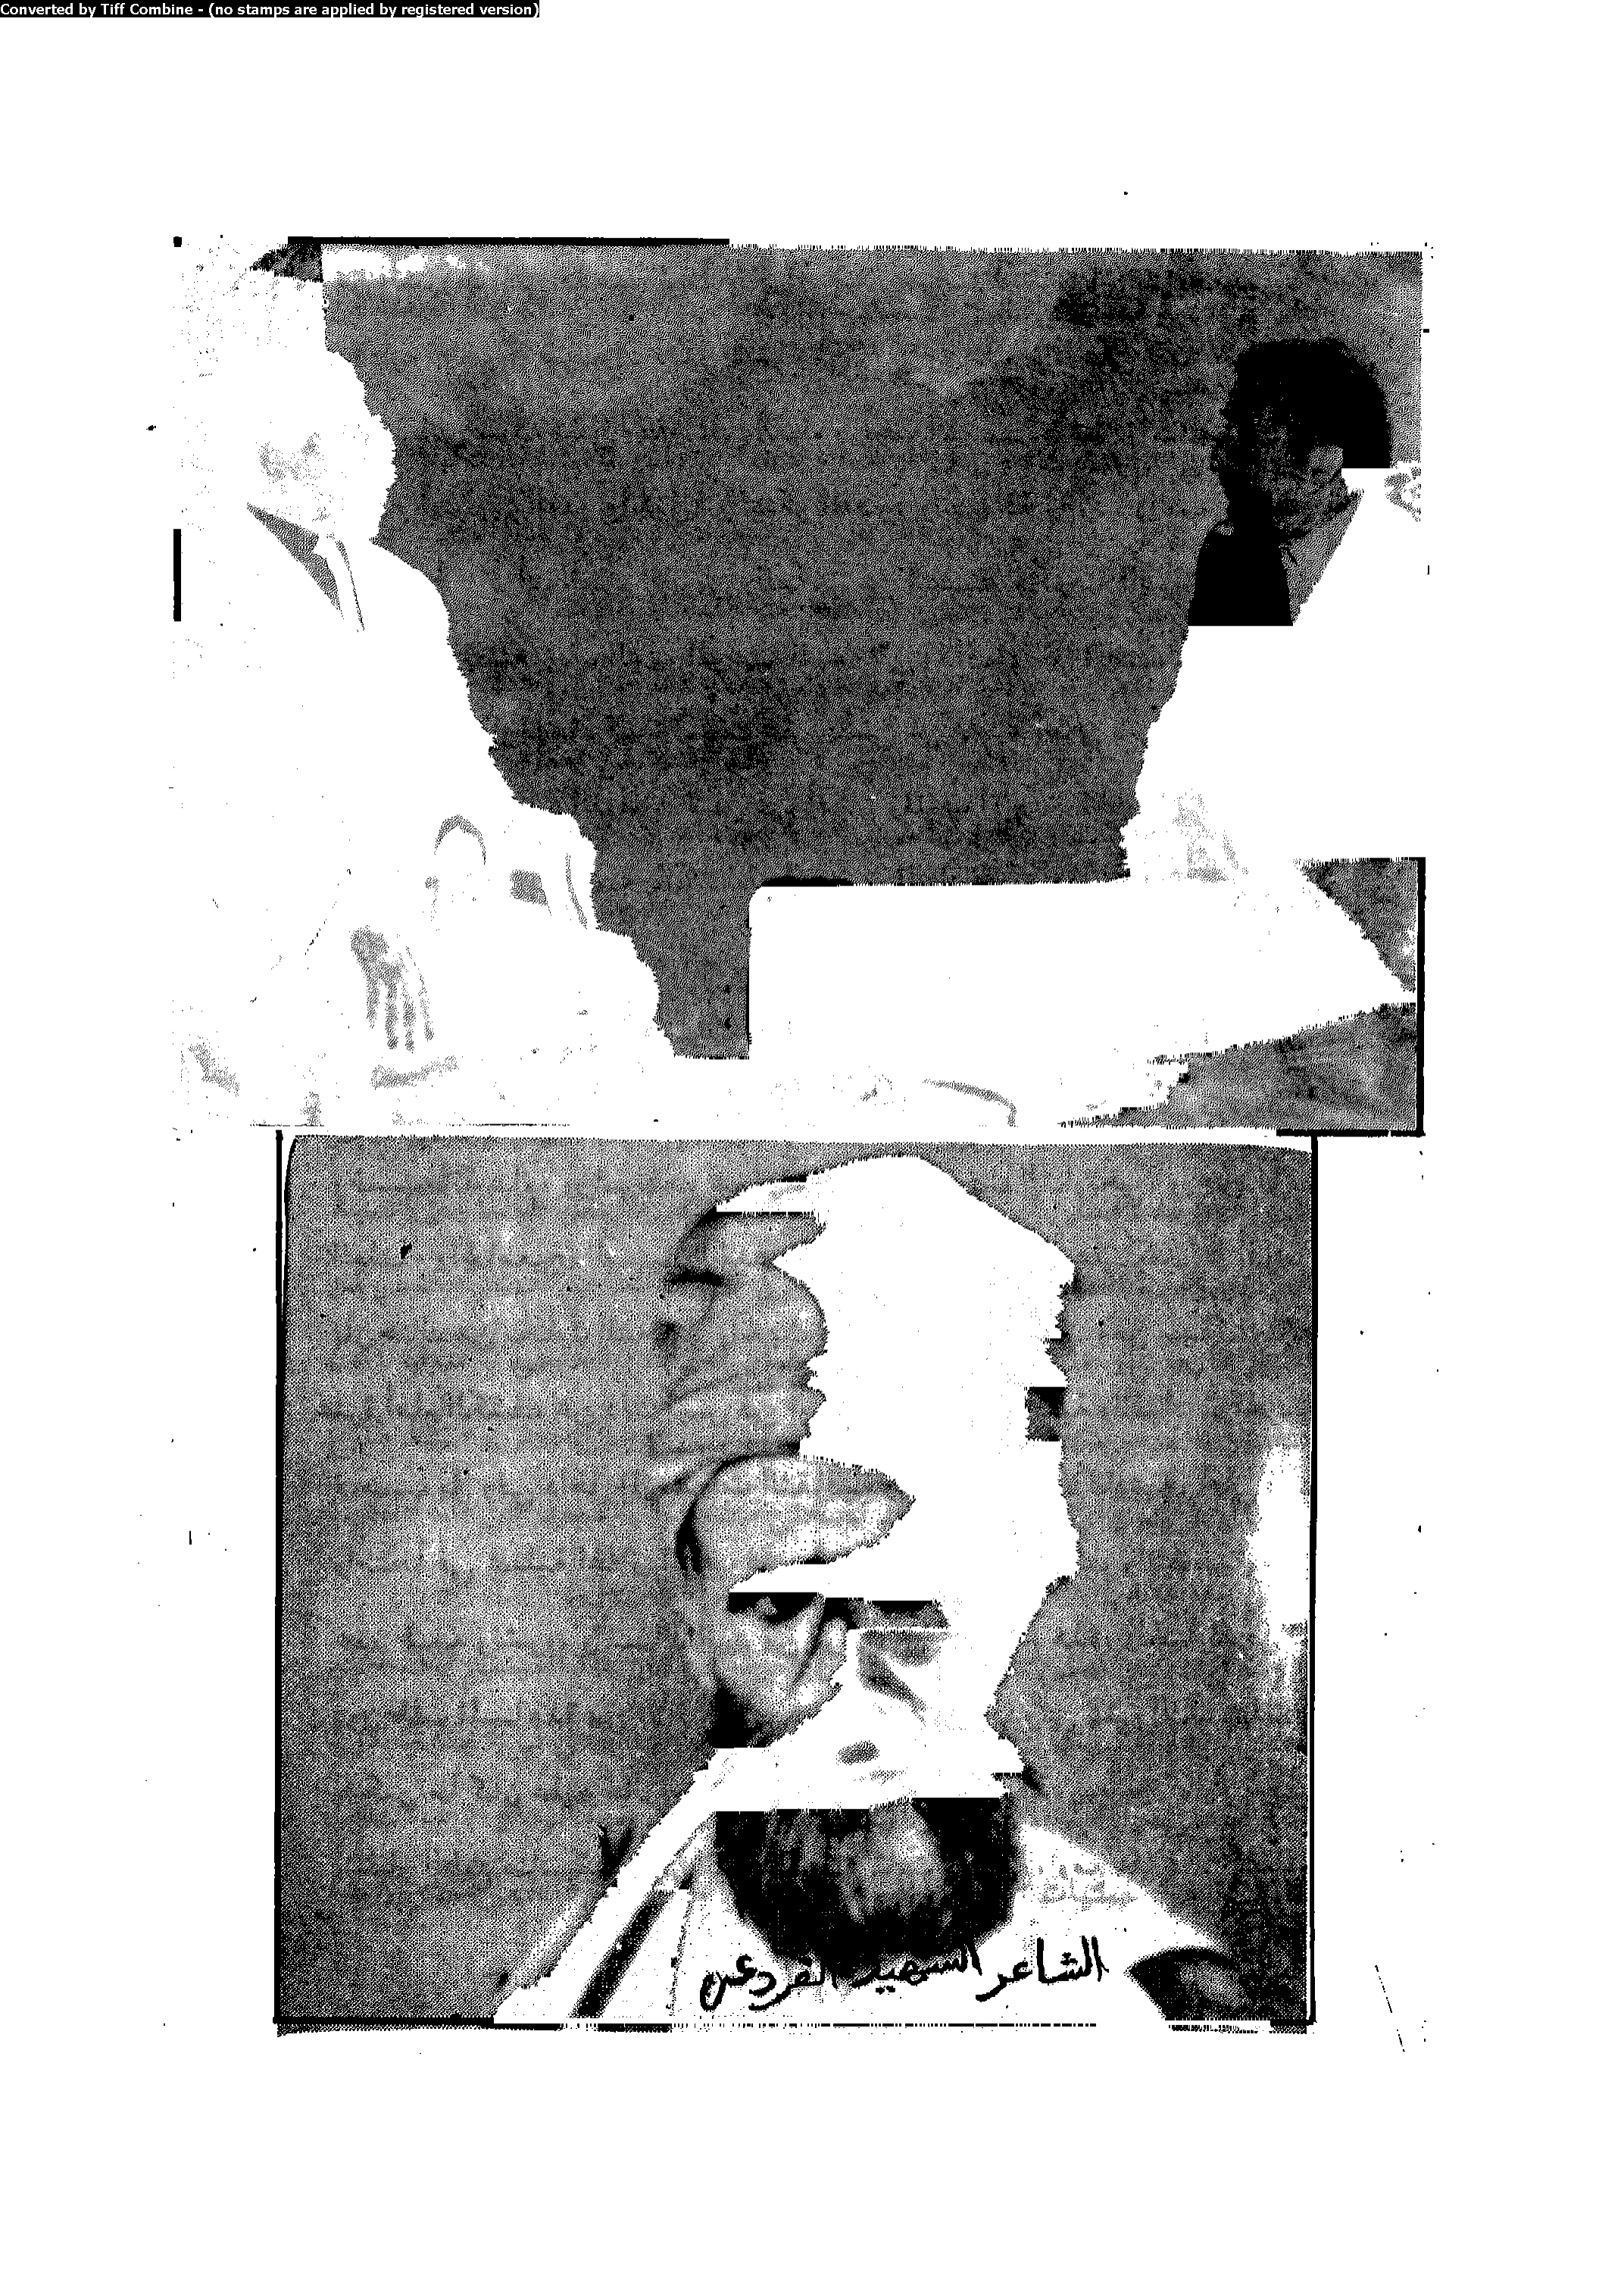 Converted by Tiff Combine - (no stamps are applied by registered version)
الشاعر الشهيد الفرد عمر